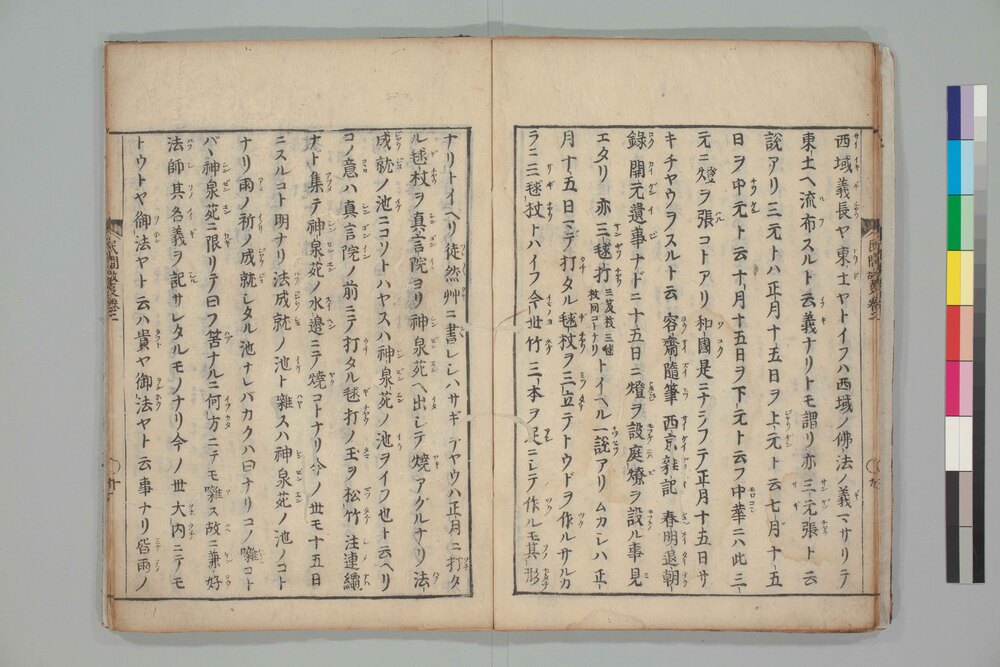 西域義長ヤ東土ヤトイフハ西域ノ佛法ノ義マサリテ
東土ヘ流布スルト云義ナリトモ謂リ亦三元張ト云
説アリ三元トハ正月十五日ヲ上元ト云七月十五
日ヲ中元ト云十月十五日ヲ下元ト云フ中華ニハ此三
元ニ燈ヲ張コトアリ和國是ニナラフテ正月十五日サ
キチヤウヲスルト云容齋隨筆西京雜記春明退朝
録開元遺事ナドニ十五日ニ燈ヲ設庭燎ヲ設ル事見
エタリ亦三毬打三及杖三毬杖同コトナリトイヘル一説アリムカシハ正
月十五日ニテ打タル毬杖ヲ三立テトウドヲ作ルサルカ
ラニ三毬杖トハイフ今ノ世竹三本ヲ足ニシテ作ルモ其形
ナリトイヘリ徒然艸ニ書レシハサギチヤウハ正月ニ打タ
ル毬杖ヲ真言院ヨリ神泉苑ヘ出シテ焼アグルナリ法
成就ノ池ニコソトハヤスハ神泉苑ノ池ヲイフ也ト云ヘリ
コノ意ハ真言院ノ前ニテ打タル毬打ノ玉ヲ松竹注連繩
ナド集テ神泉苑ノ水邉ニテ焼コトナリ今ノ世モ十五日
ニスルコト明ナリ法成就ノ池ト囃スハ神泉苑ノ池ノコト
ナリ雨ノ祈ノ成就シタル池ナレバカクハ曰ナリコノ囃コト
バ神泉苑ニ限リテ曰フ筈ナルニ何方ニテモ囃ス故ニ兼好
法師其名義ヲ記サレタルモノナリ今ノ世大内ニテモ
トウトヤ御法ヤト云ハ貴ヤ御法ヤト云事ナリ皆雨ノ